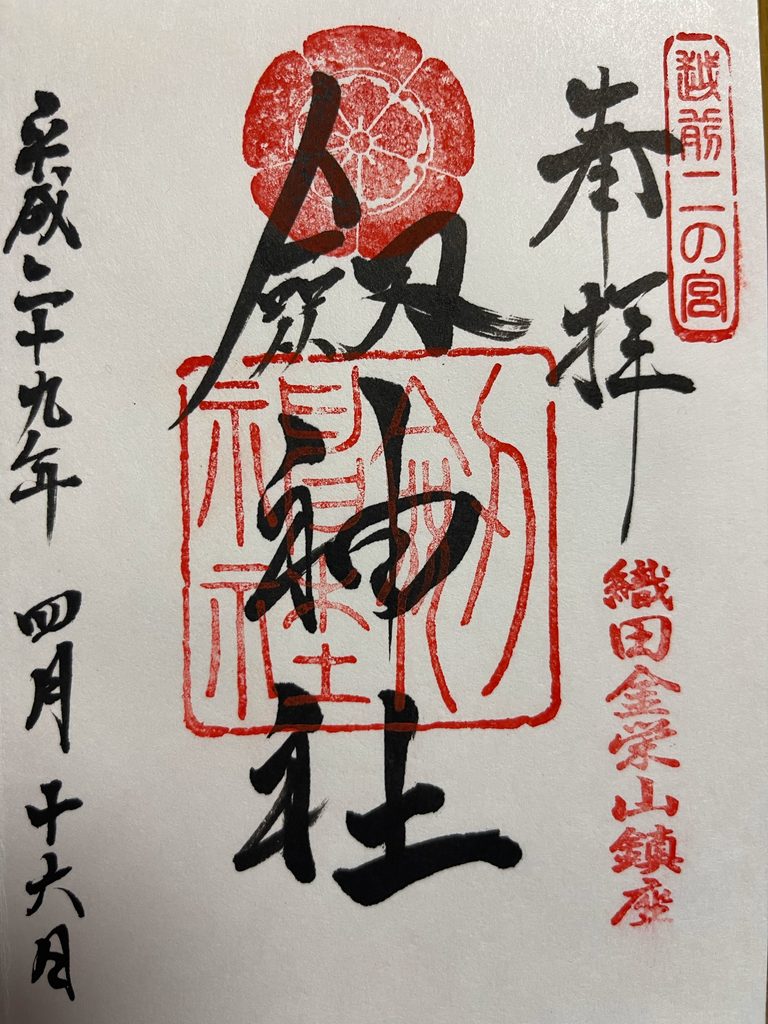 越前二の宮
奉拝
織田金栄山鎮座
劔神社
劔神社
平成二十九年 四月 十六日